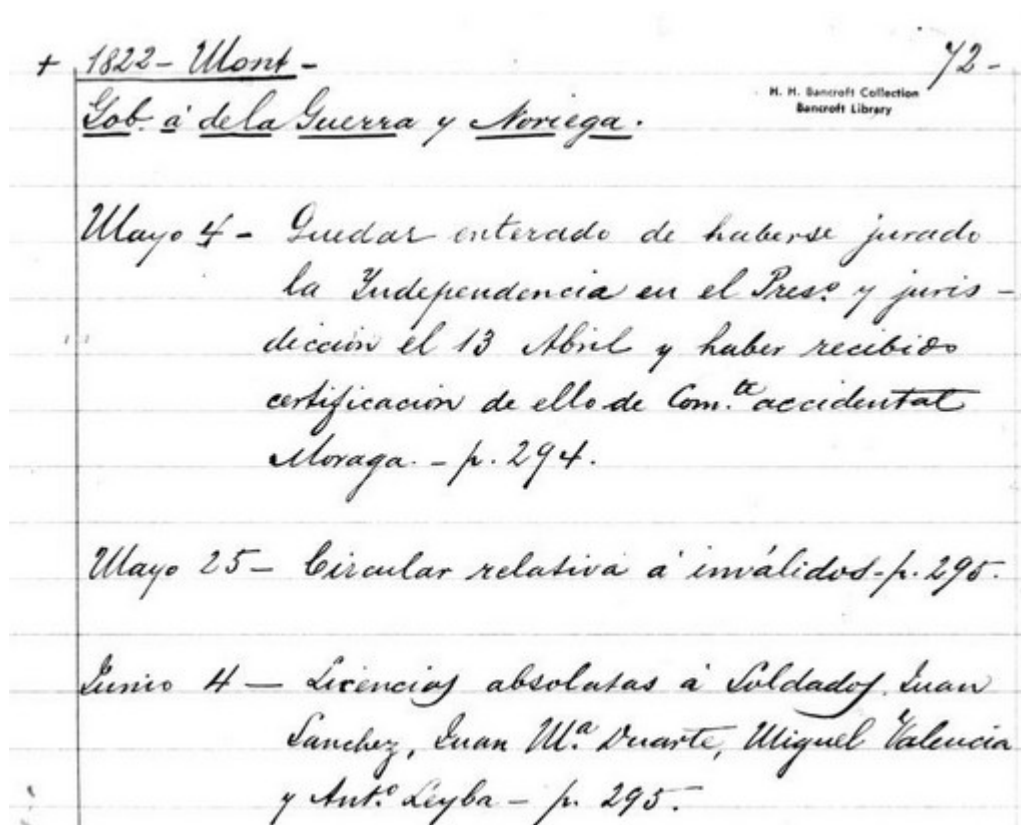 + 1822 - Mont - 72 -
H. H. Bancroft Collection
Bancroft Library
Gob. á de la Guerra y Noriega.
Mayo 4 - Quedar enterado de haberse jurado
la Independencia en el Pres.o y juris -
dicción el 13 Abril y haber recibido
certificación de ello de Com.te accidental
Moraga. - p. 294.
Mayo 25 - Circular relativa á inválidos - p. 295.
Junio 4 - Licencias absolutas á Soldados. Juan
Sanchez, Juan M.a Duarte, Miguel Valencia
y Ant.o Leyba - p. 295.